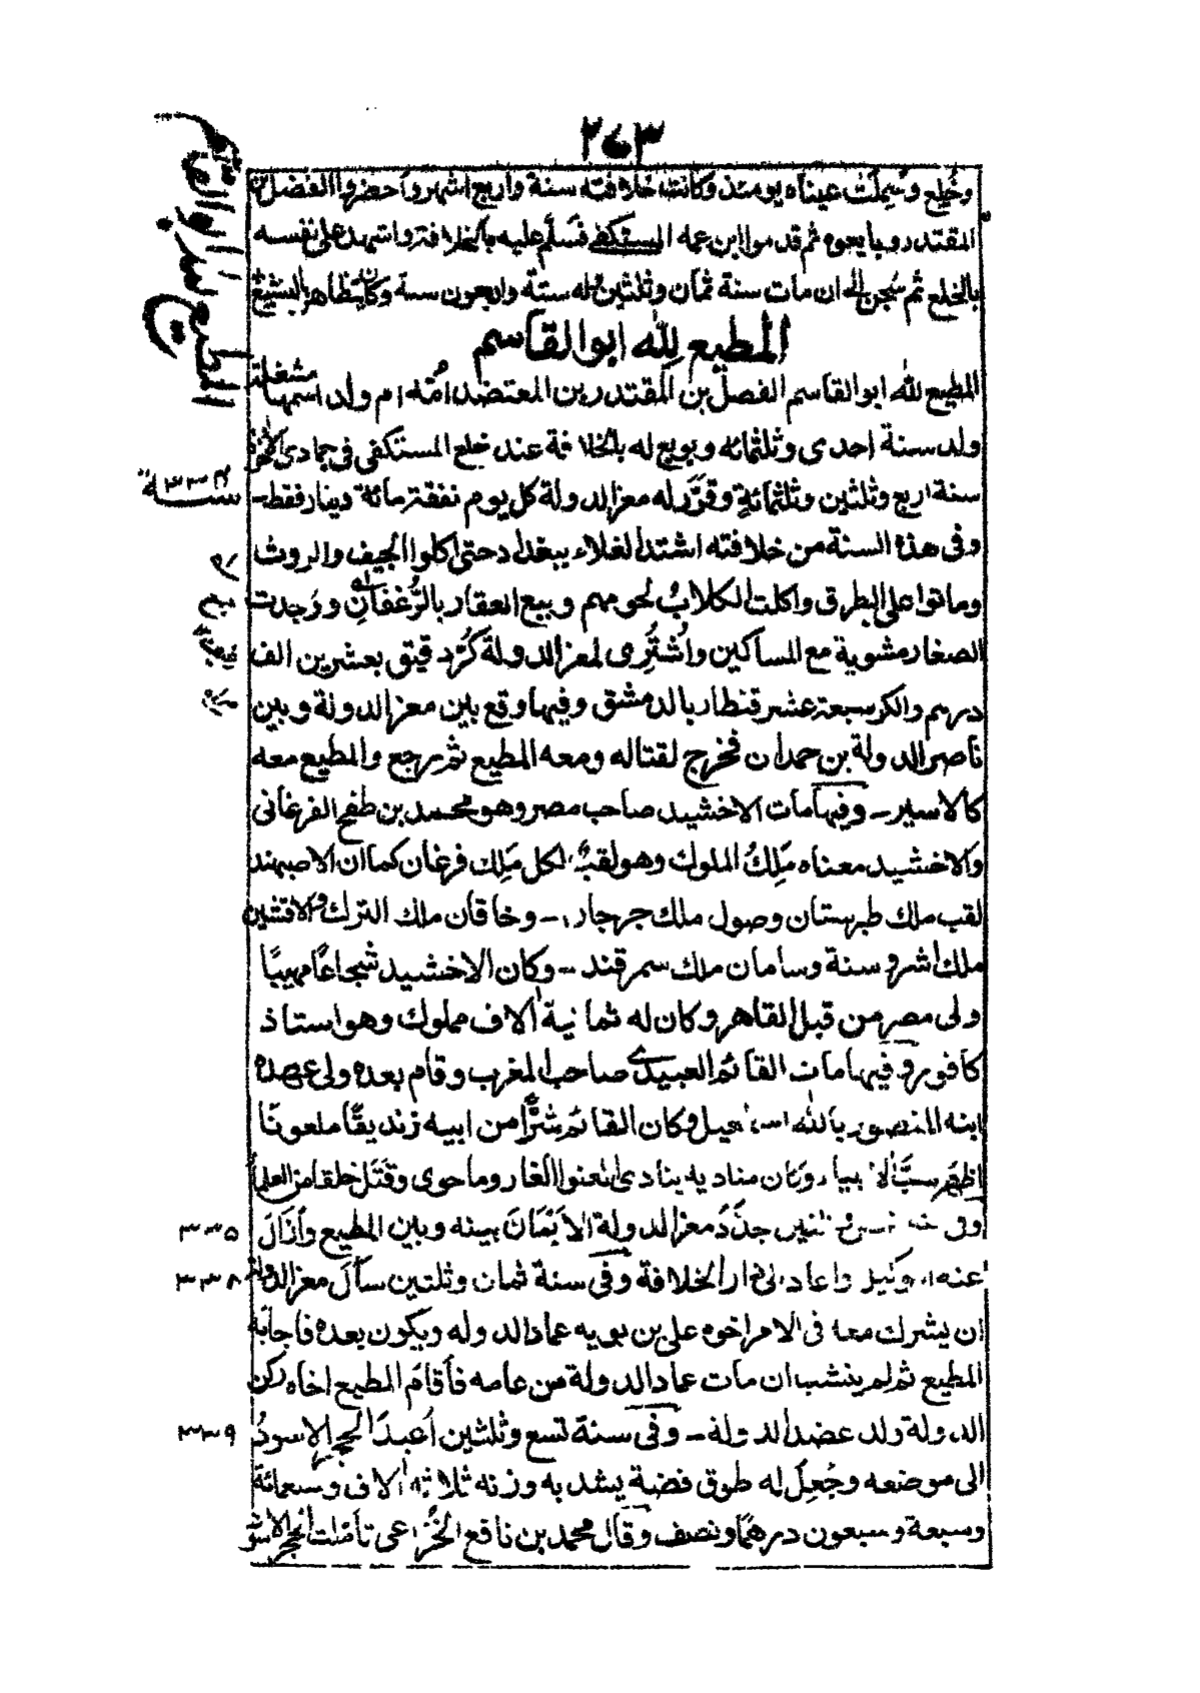 ٢٧٣
وخُلِع وسُمِلَت عيناه يومئذ وكانت خلافته سنة واربع اشهر واحضروا الفضل بن
المقتدر وبايعوه ثم قدموا ابن عمه المستكفى فسلّم عليه بالخلافة واشهد على نفسه
بالخلع ثم سُجن الى ان مات سنة ثمان وثلثين وله ستة واربعون سنة وكان يتظاهر بالتشيع
المطيع لله ابو القاسم
المطيع لله ابو القاسم الفضل بن المقتدر بن المعتضد اُمّه ام ولد اسمها مشغلة
ولد سنة احدى وثلثمائه وبويع له بالخلافة عند خلع المستكفى فى جمادى الاخرة
سنة اربع وثلثين وثلثمائةٍ وقرَّر له معز الدولة كل يوم نفقة مائة دينار فقط-
وفى هذه السنة من خلافته اشتد الغلاء ببغداد حتى اكلوا الجيف والروث
وماتوا على الطرق واكلت الكلابُ لحومهم وبيع العقار بالرُّغفانِ ووَجدت
الصغار مشوية مع المساكين واُشتُرِى لمعز الدولة كُرّ دقيق بعشرين الف
درهم والكر سبعة عشر قنطار بالدمشق وفيها وقع بين معز الدولة وبين
ناصر الدولة بن حمدان فخرج لقتاله ومعه المطيع ثم رجع والمطيع معه
كالاسير- وفيها مات الاخشيد صاحب مصر وهو محمد بن طغج الفرغانى
والاخشيد معناه مَلِكُ الملوك وهو لقبٌ لكل مَلِك فرغان كما ان الاصبهند
لقب ملك طبرستان وصول ملك جرجان- وخاقان ملك الترك والافشين
ملك اشروسنة وسامان ملك سمرقند- وكان الاخشيد شجاعًا مهيبًا
ولى مصر من قبل القاهر وكان له ثمانية الاف مملوك وهو استاذ
كافور وفيها مات القائم العبيدى صاحب المغرب وقام بعده ولى عهده
ابنه المنصور بالله اسماعيل وكان القائم شرًّا من ابيه زنديقًا ملعونًا
اظهر سبَّ الانبياء وكان مناديه ينادى العنوا الغار وما حوى وقَتَل خلقا من العلماء
وفى سنة خمس وثلثين جدَّدَ معز الدولة الاَيْمَانَ بينه وبين المطيع وأزَالَ
عنه التوكيل واعاده الى دار الخلافة وفى سنة ثمان وثلثين سأَلَ معز الدولة
ان يشرك معه فى الامر اخوه على بن بويه عماد الدوله ويكون بعده فاجابه
المطيع ثم لم ينشب ان مات عماد الدولة من عامه فأقامَ المطيع اخاه ركن
الدولة ولد عضد الدولة- وفى سنة تسع وثلثين اُعيدَ الحجر الاسودُ
الى موضعه وجُعِلَ له طوق فضة يشد به وزنه ثلاثة الاف وسبعمائة
وسبعة وسبعون درهمًا ونصف وقال محمد بن نافع الخُزاعى تأمّلت الحجر الاسود
المطيع لله ابو القاسم
سنة ٣٣٤
بيع
٣٣٥
٣٣٨
٣٣٩